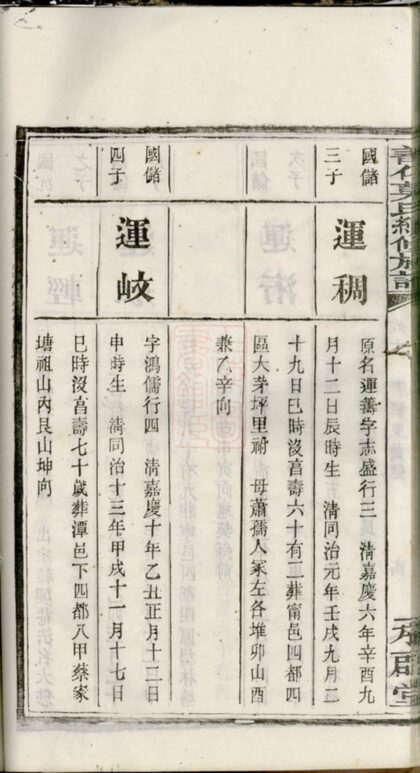 國儲
三子
運稠
原名運善字志盛行三 清嘉慶六年辛酉九
月十二日辰時生 清同治元年壬戌九月二
十九日巳時沒享壽六十有二葬甯邑四都四
區大芽坪里祔 母蕭孺人冢左各堆卯山酉
兼乙辛向
國儲
四子
運岐
字鴻儒行四 清嘉慶十年乙丑正月十二日
申時生 清同治十三年甲戌十一月十七日
巳時沒享壽七十歲葬潭邑下四都八甲蔡家
塘祖山內艮山坤向